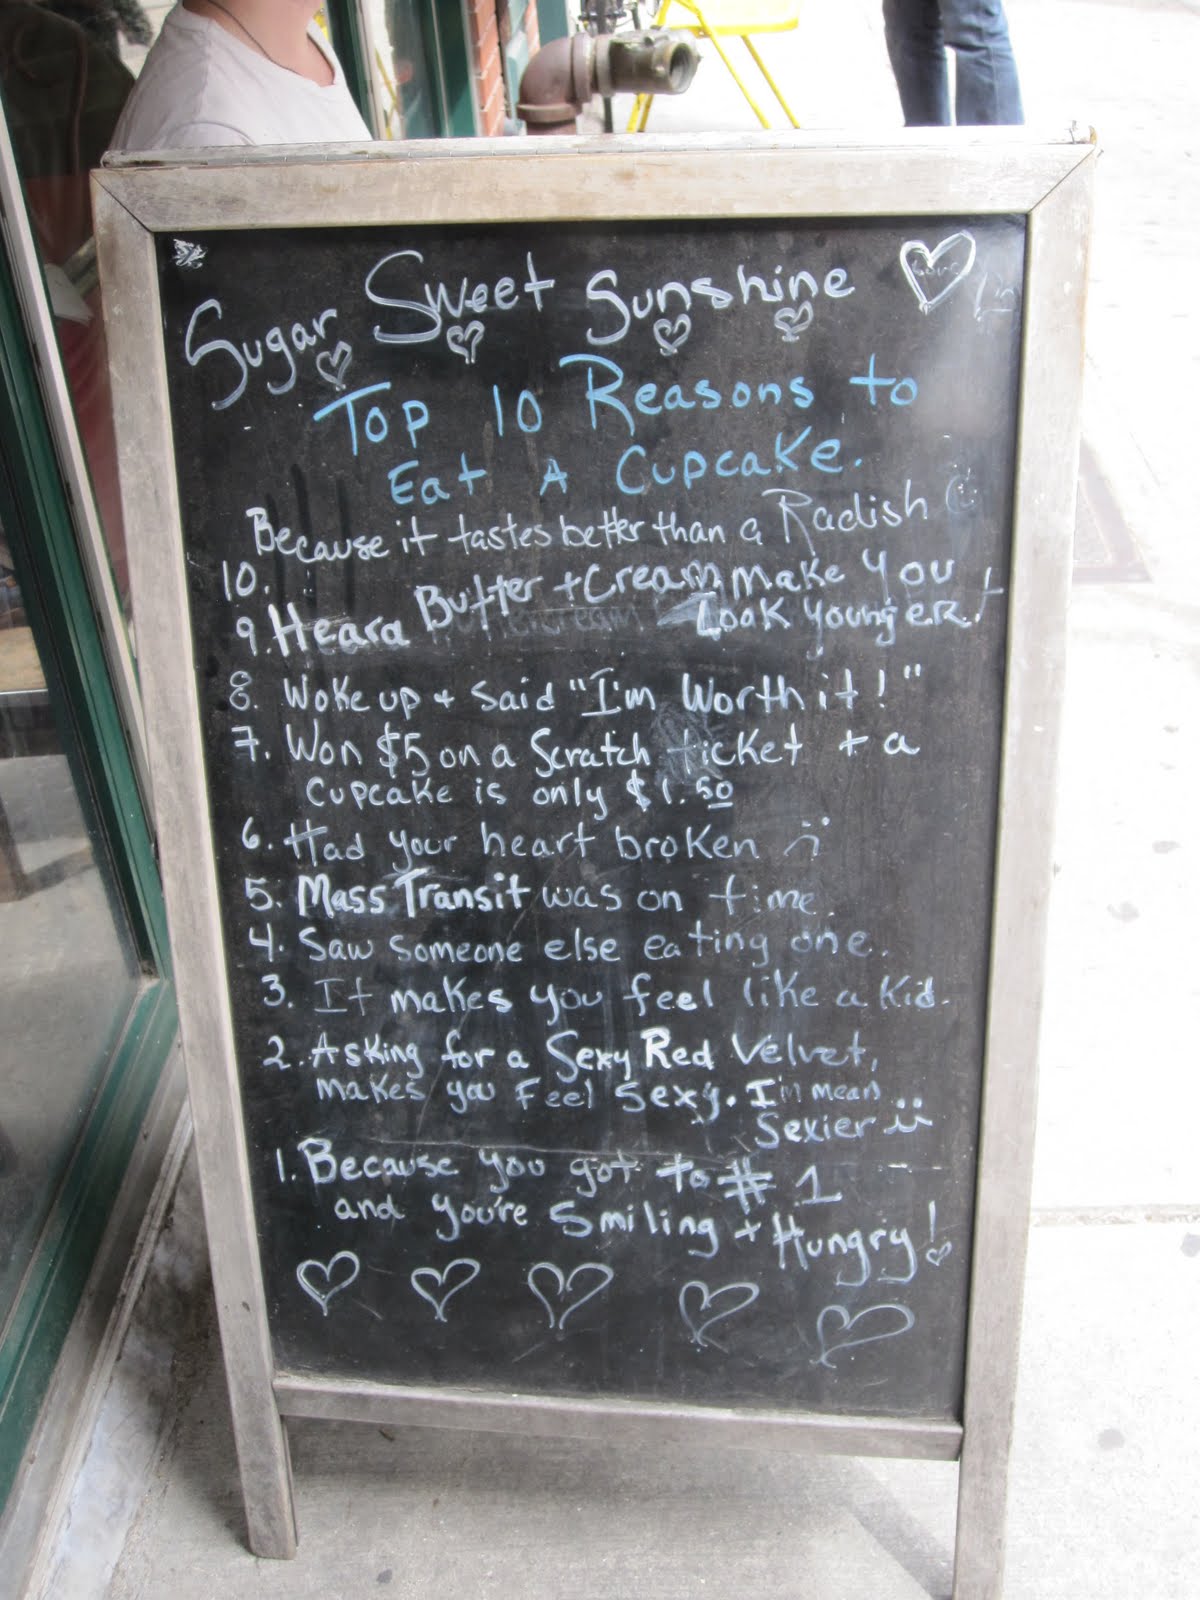 Sugar Sweet Sunshine
Love
Top 10 Reasons to
Eat A Cupcake.
10. Because it tastes better than a Radish
9. Heard Butter + Cream make you
Look younger!
8. Woke up + said "I'm Worth it!"
7. Won $5 on a Scratch ticket + a
Cupcake is only $1.50
6. Had your heart broken
5. Mass Transit was on time.
4. Saw someone else eating one.
3. It makes you feel like a kid.
2. Asking for a Sexy Red Velvet,
makes you Feel Sexy. I'm mean
Sexier
1. Because you got to # 1
and you're Smiling + Hungry!